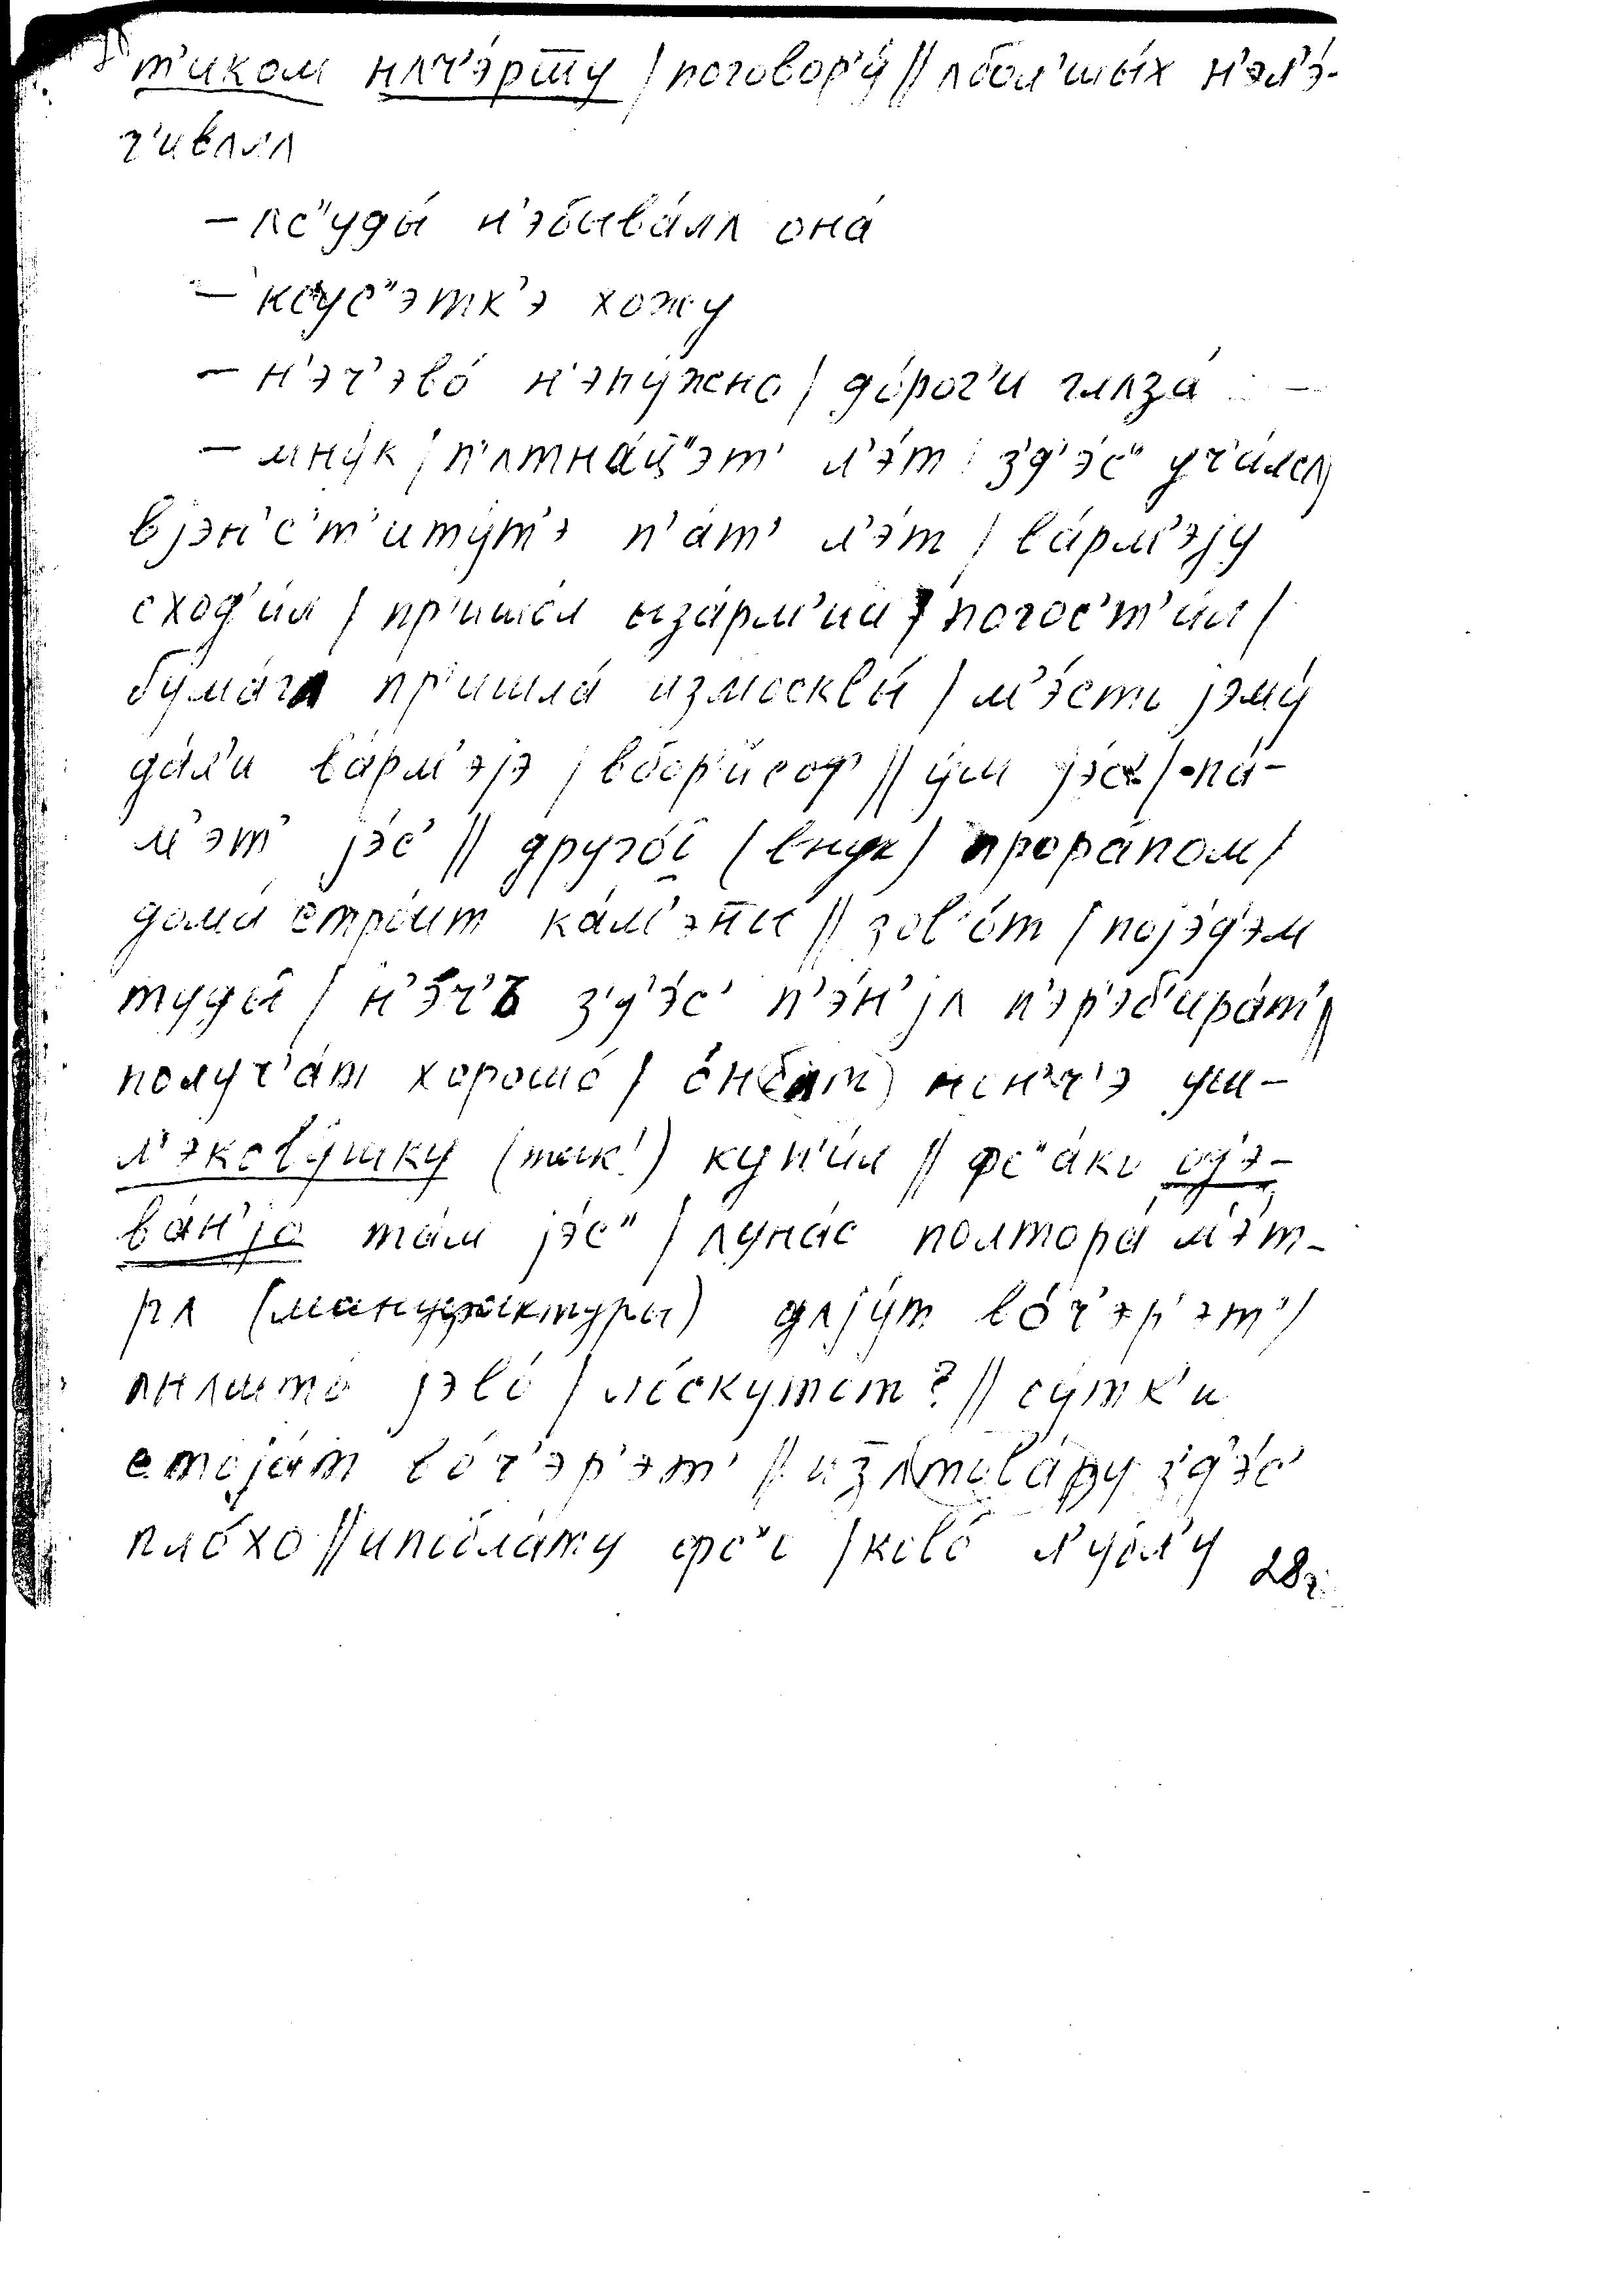 т'иком нʌч'э́рт̅у / поговор'у́ // ʌбол'шы́х н'эл'э́-
г'ивʌлʌ
– ʌс"уды́ н'эбыва́лʌ она́
– ксус"этк'э хожу
– н'эч'эво́ н'эну́жно / до́рог'и глʌза́
– мну́к / п'ʌтна́ц"эт' л'э́т / з'д'э́с" уч'и́лсʌ /
вjэн'с'т'иту́т'э п'а́т' л'э́т / ва́рм'эjу
сход'и́л / пр'ишо́л ыза́рм'ии / погос'т'и́л /
бума́гʌ пр'ишла́ измосквы́ / м'э́сто jэму́
да́л'и ва́рм'эjэ / вбор'и́соф' // у́м jэ́с' / па́-
м'эт' jэ́с' // друго́і̯ (внук) прора́пом /
дома́ стро́ит ка́м'эн̅ы // зов'о́т / поjэ́д'эм
туды́ / н'э́ч'ъ з'д'э́с' п'э́н'jʌ п'эр'эб'ира́т' //
получ'а́т хорошо́ / о́н(бʌт) нон'ч'э уш-
л'эково́ушку (так!) куп'и́л // фс"а́ко од'э-
ва́н'jо та́м jэ́с" / ʌуна́с полтора́ м'э́т-
рʌ (мануфактуры) дʌjу́т во́ч'эр'эт' /
ʌнʌшто́ jэво́ / ло́скутот? // су́тк'и
стоjа́т во́ч'эр'эт' // изʌтова́ру з'д'э́с'
пло́хо // ипобла́ту фс"о / ково́ л'убл'у 28г.